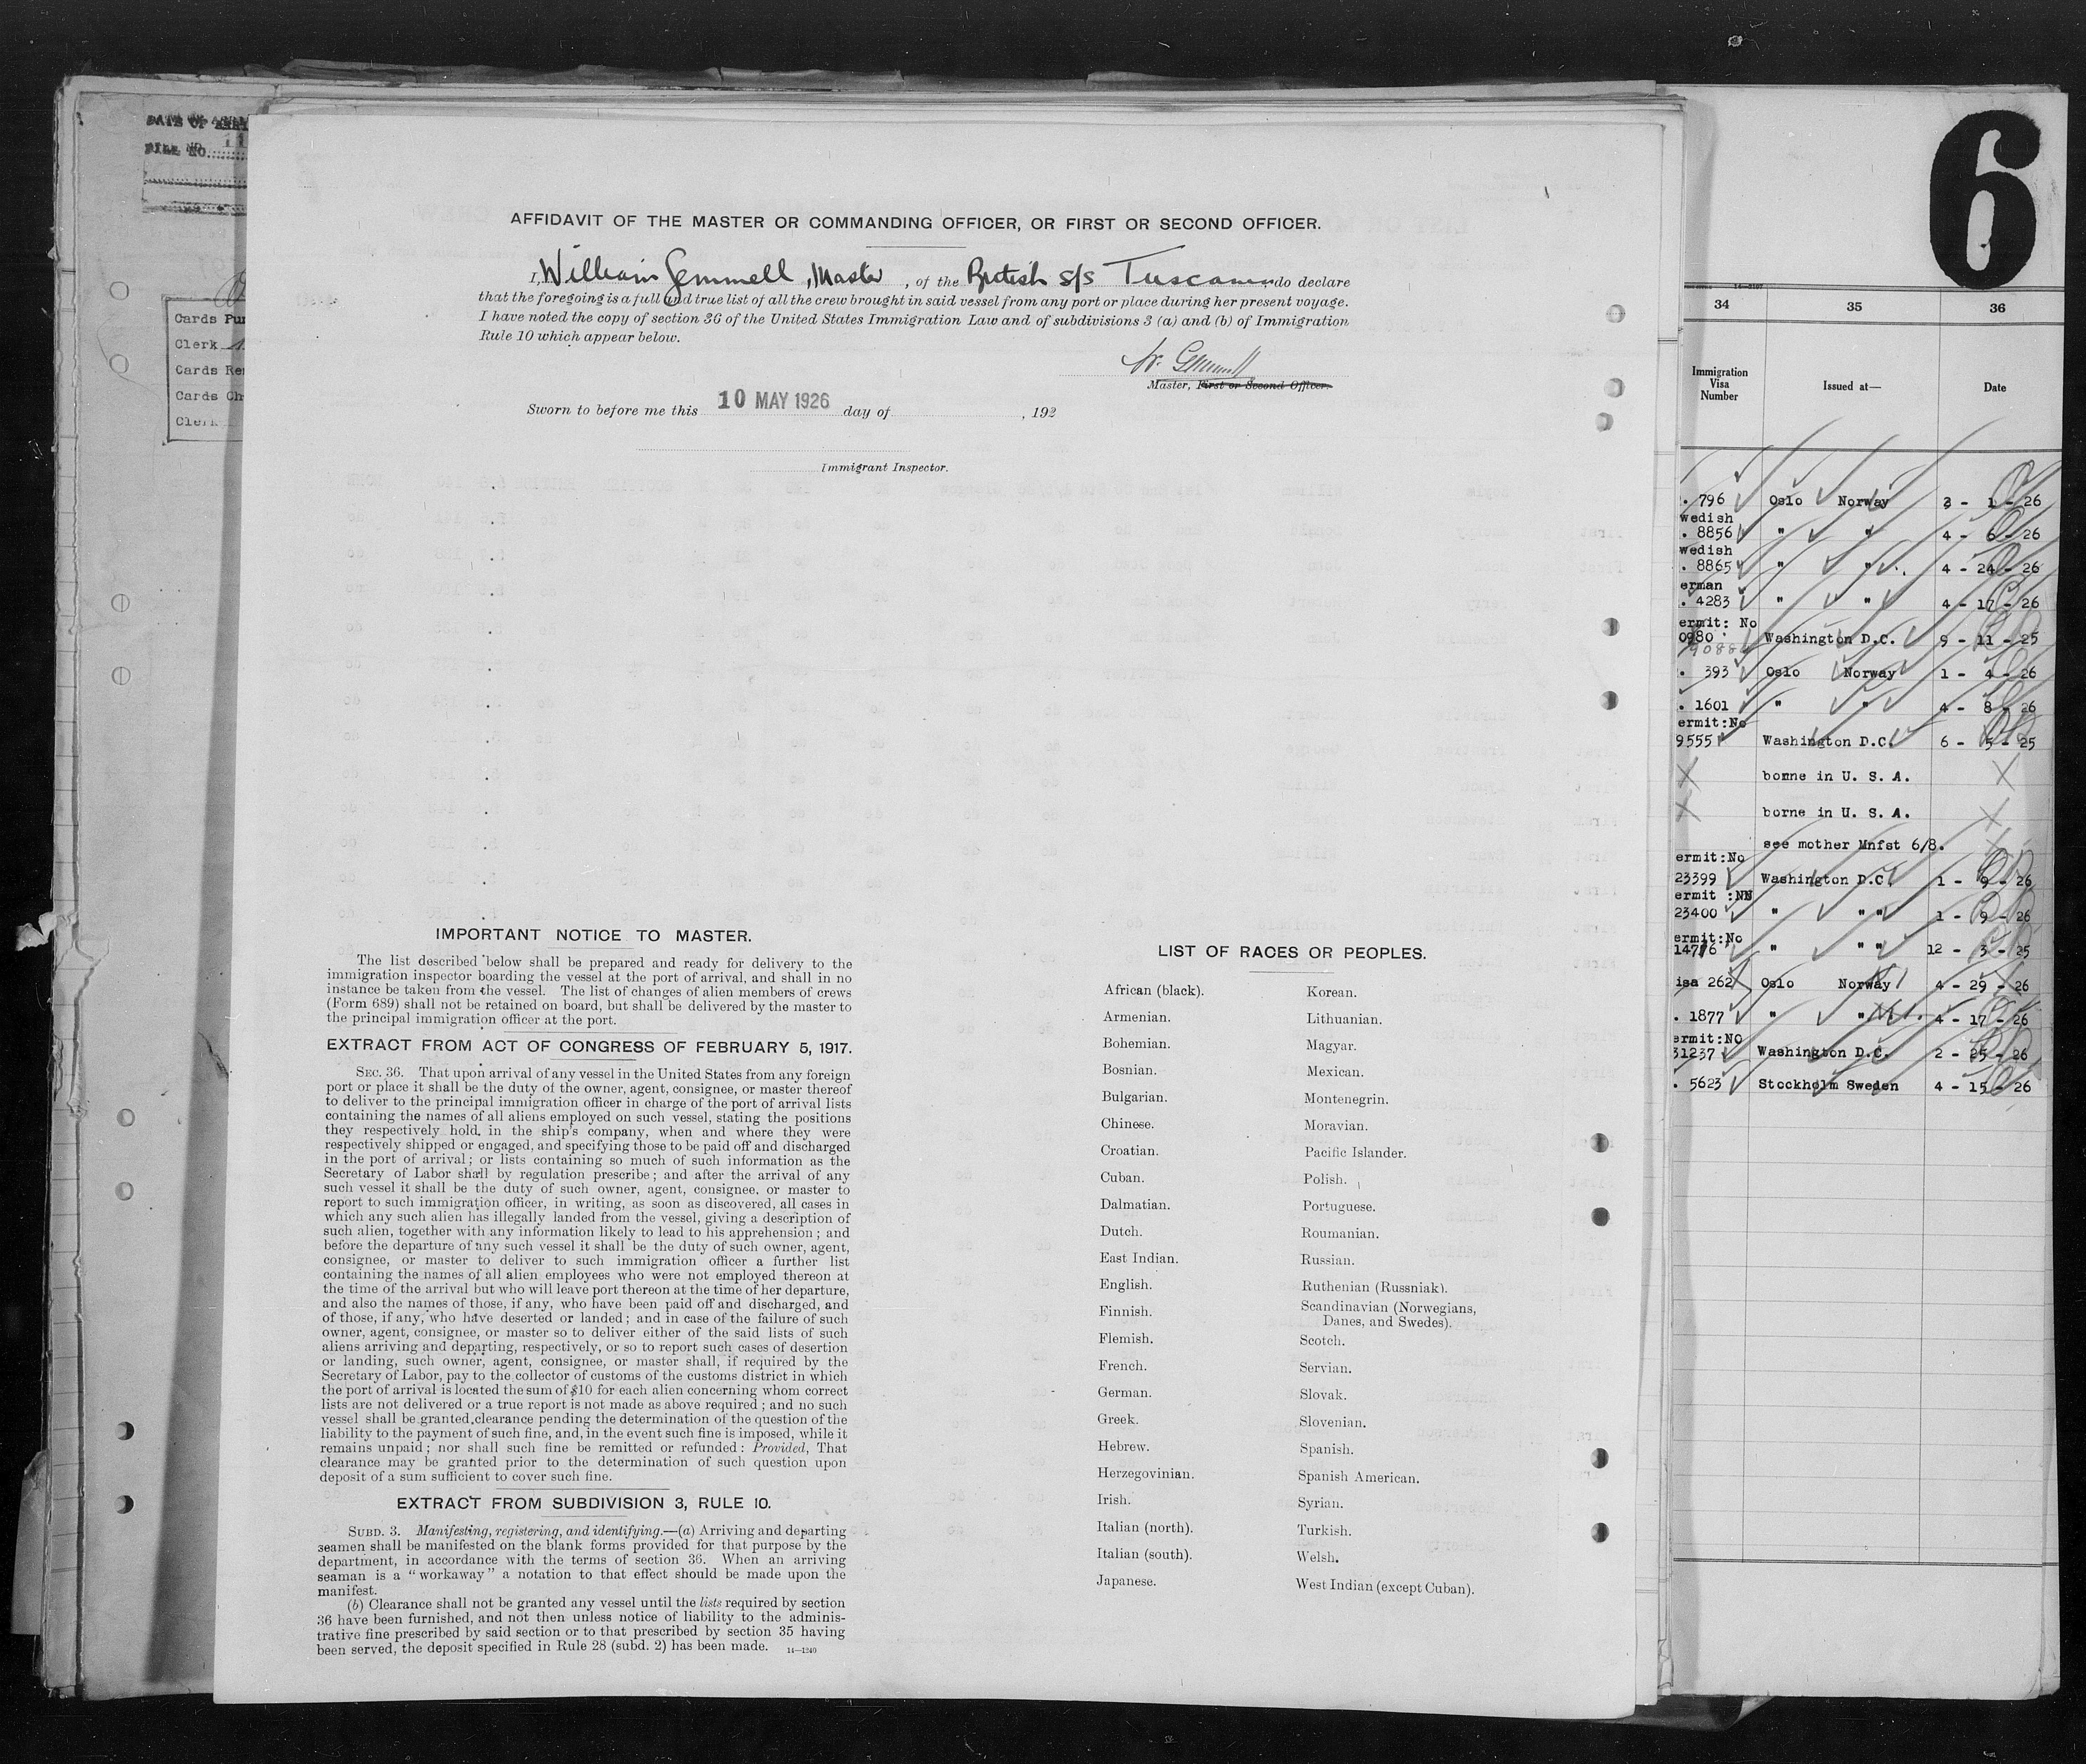 DATE OF
FILE NO.
Cards Pu
Clerk
Cards Re
Cards Ch
Clerk
AFFIDAVIT OF THE MASTER OR COMMANDING OFFICER, OR FIRST OR SECOND OFFICER.
I, William Gemmell, Master, of the British S/S Tuscania do declare
that the foregoing is a full and true list of all the crew brought in said vessel from any port or place during her present voyage.
I have noted the copy of section 36 of the United States Immigration Law and of subdivisions 3 (a) and (b) of Immigration
Rule 10 which appear below.
W. Gemmell
Master, First or Second Officer.
Sworn to before me this 10 MAY 1926 day of , 192
Immigrant Inspector.
IMPORTANT NOTICE TO MASTER.
The list described below shall be prepared and ready for delivery to the
immigration inspector boarding the vessel at the port of arrival, and shall in no
instance be taken from the vessel. The list of changes of alien members of crews
(Form 689) shall not be retained on board, but shall be delivered by the master to
the principal immigration officer at the port.
EXTRACT FROM ACT OF CONGRESS OF FEBRUARY 5, 1917.
SEC. 36. That upon arrival of any vessel in the United States from any foreign
port or place it shall be the duty of the owner, agent, consignee, or master thereof
to deliver to the principal immigration officer in charge of the port of arrival lists
containing the names of all aliens employed on such vessel, stating the positions
they respectively hold in the ship's company, when and where they were
respectively shipped or engaged, and specifying those to be paid off and discharged
in the port of arrival; or lists containing so much of such information as the
Secretary of Labor shall by regulation prescribe; and after the arrival of any
such vessel it shall be the duty of such owner, agent, consignee, or master to
report to such immigration officer, in writing, as soon as discovered, all cases in
which any such alien has illegally landed from the vessel, giving a description of
such alien, together with any information likely to lead to his apprehension; and
before the departure of any such vessel it shall be the duty of such owner, agent,
consignee, or master to deliver to such immigration officer a further list
containing the names of all alien employees who were not employed thereon at
the time of the arrival but who will leave port thereon at the time of her departure,
and also the names of those, if any, who have been paid off and discharged, and
of those, if any, who have deserted or landed; and in case of the failure of such
owner, agent, consignee, or master so to deliver either of the said lists of such
aliens arriving and departing, respectively, or so to report such cases of desertion
or landing, such owner, agent, consignee, or master shall, if required by the
Secretary of Labor, pay to the collector of customs of the customs district in which
the port of arrival is located the sum of $10 for each alien concerning whom correct
lists are not delivered or a true report is not made as above required; and no such
vessel shall be granted clearance pending the determination of the question of the
liability to the payment of such fine, and, in the event such fine is imposed, while it
remains unpaid; nor shall such fine be remitted or refunded: Provided, That
clearance may be granted prior to the determination of such question upon
deposit of a sum sufficient to cover such fine.
EXTRACT FROM SUBDIVISION 3, RULE 10.
SUBD. 3. Manifesting, registering, and identifying.—(a) Arriving and departing
seamen shall be manifested on the blank forms provided for that purpose by the
department, in accordance with the terms of section 36. When an arriving
seaman is a "workaway" a notation to that effect should be made upon the
manifest.
(b) Clearance shall not be granted any vessel until the lists required by section
36 have been furnished, and not then unless notice of liability to the adminis-
trative fine prescribed by said section or to that prescribed by section 35 having
been served, the deposit specified in Rule 28 (subd. 2) has been made. 14—1240
LIST OF RACES OR PEOPLES.
African (black).
Armenian.
Bohemian.
Bosnian.
Bulgarian.
Chinese.
Croatian.
Cuban.
Dalmatian.
Dutch.
East Indian.
English.
Finnish.
Flemish.
French.
German.
Greek.
Hebrew.
Herzegovinian.
Irish.
Italian (north).
Italian (south).
Japanese.
Korean.
Lithuanian.
Magyar.
Mexican.
Montenegrin.
Moravian.
Pacific Islander.
Polish.
Portuguese.
Roumanian.
Russian.
Ruthenian (Russniak).
Scandinavian (Norwegians,
Danes, and Swedes).
Scotch.
Servian.
Slovak.
Slovenian.
Spanish.
Spanish American.
Syrian.
Turkish.
Welsh.
West Indian (except Cuban).
6
34 35 36
Immigration
Visa
Number
Issued at—
Date
. 796 Oslo Norway 3 - 1 - 26
wedish
. 8856 " " 4 - 6 - 26
wedish
. 8865 " " 4 - 24 - 26
erman
. 4283 " " 4 - 17 - 26
ermit: No
0980 Washington D.C. 9 - 11 - 25
. 393 Oslo Norway 1 - 4 - 26
. 1601 " " 4 - 8 - 26
ermit:No
9555 Washington D.C. 6 - 5 - 25
X borne in U. S. A. X
X borne in U. S. A. X
see mother Mnfst 6/8.
ermit:No
23399 Washington D.C. 1 - 9 - 26
ermit :NN
23400 " " " 1 - 9 - 26
ermit:No
14776 " " " 12 - 3 - 25
isa 262 Oslo Norway 4 - 29 - 26
. 1877 " " 4 - 17 - 26
ermit:NO
31237 Washington D.C. 2 - 25 - 26
. 5623 Stockholm Sweden 4 - 15 - 26